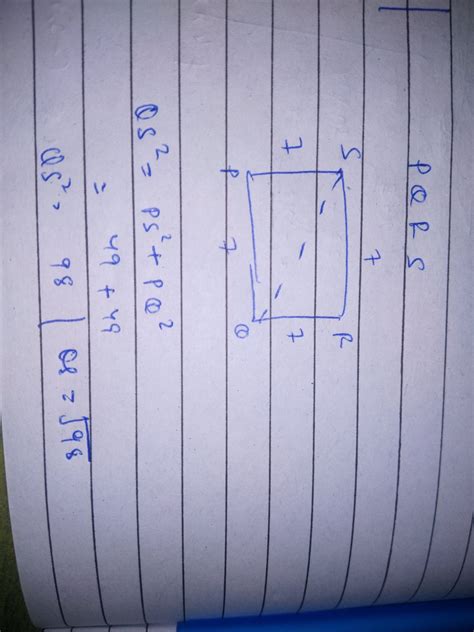 PQRS
7
S R
7 7
P Q
7
QS² = PS² + PQ²
= 49 + 49
QS² = 98 | QS = √98